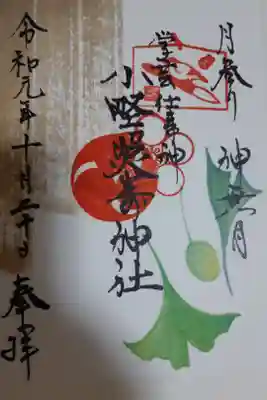 月参り 神無月
学芸仕事神
小野照崎神社
令和元年十月二十日 奉拝